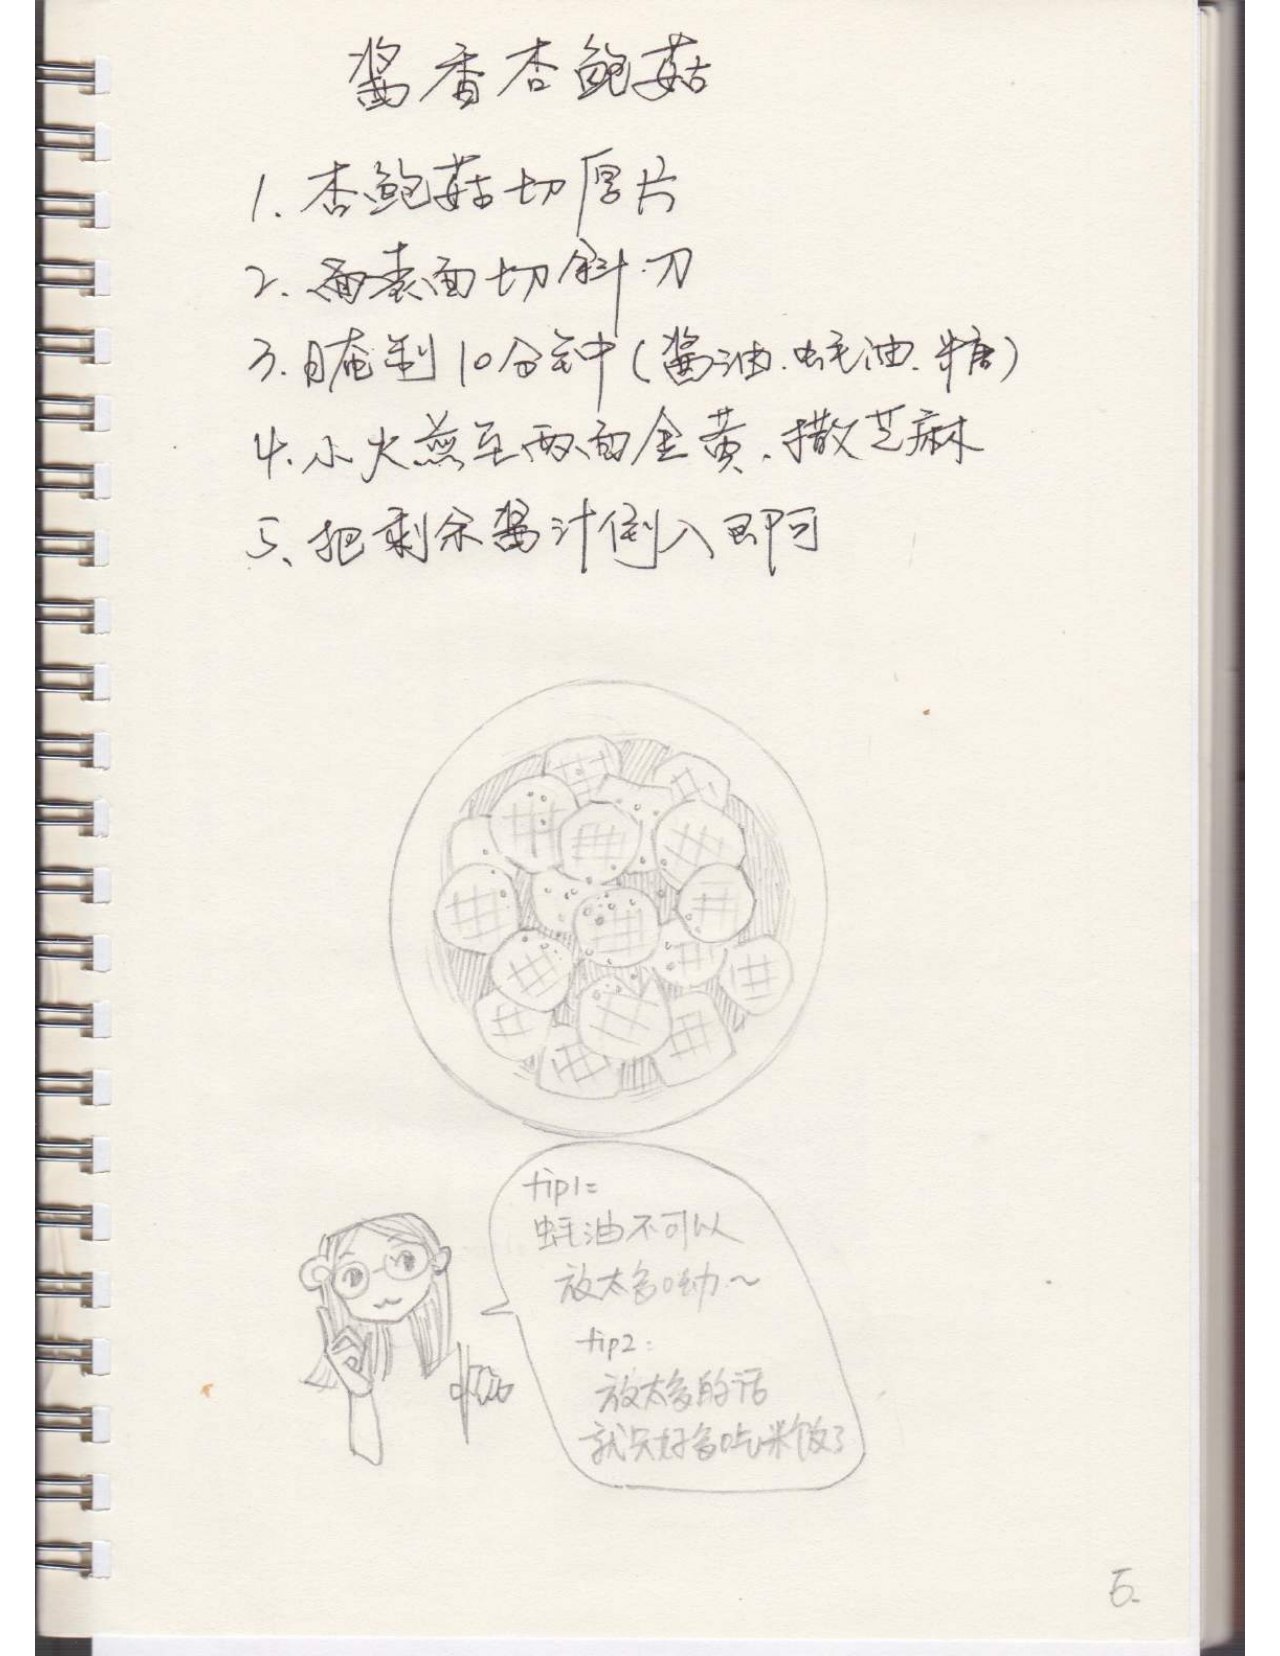 酱香杏鲍菇
1. 杏鲍菇切厚片
2. 表面切斜刀
3. 腌制10分钟(酱油.蚝油.糖)
4. 小火煎至两面金黄.撒芝麻
5、把剩余酱汁倒入即可
tip1:
蚝油不可以
放太多呦~
tip2:
放太多的话
就只好多吃米饭了
5.